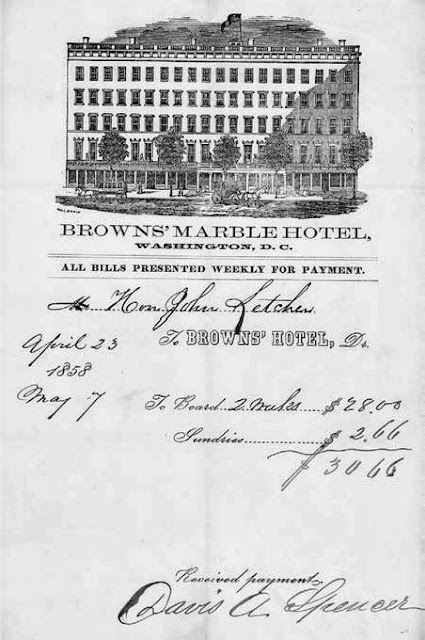 BROWNS' MARBLE HOTEL,
WASHINGTON, D. C.
ALL BILLS PRESENTED WEEKLY FOR PAYMENT.
Hon John Letcher
April 23 To BROWNS' HOTEL, Dr.
1858
May 7 To Board 2 Weeks $28.00
Sundries $ 2.66
$ 30 66
Received payment,
Davis A. Spencer